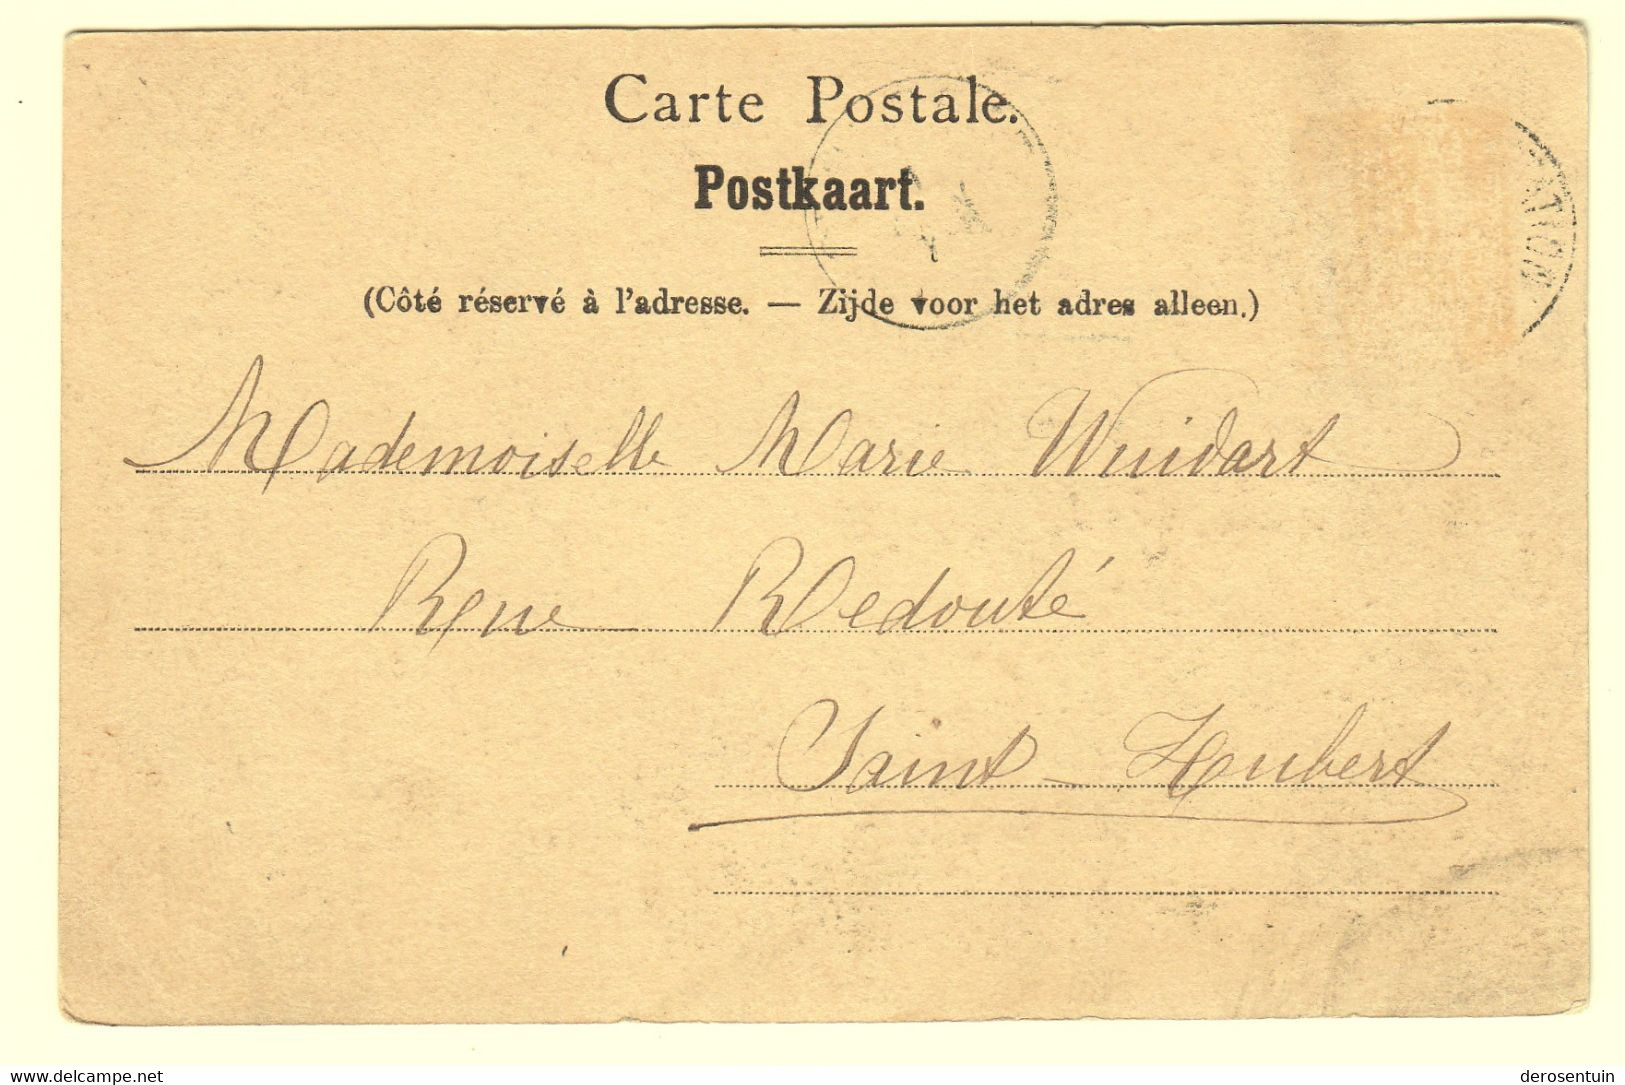 Carte Postale.
Postkaart.
(Côté réservé à l'adresse. — Zijde voor het adres alleen.)
Mademoiselle Marie Wuidart
Rue Redouté
Saint-Hubert
www.delcampe.net
derosentuin